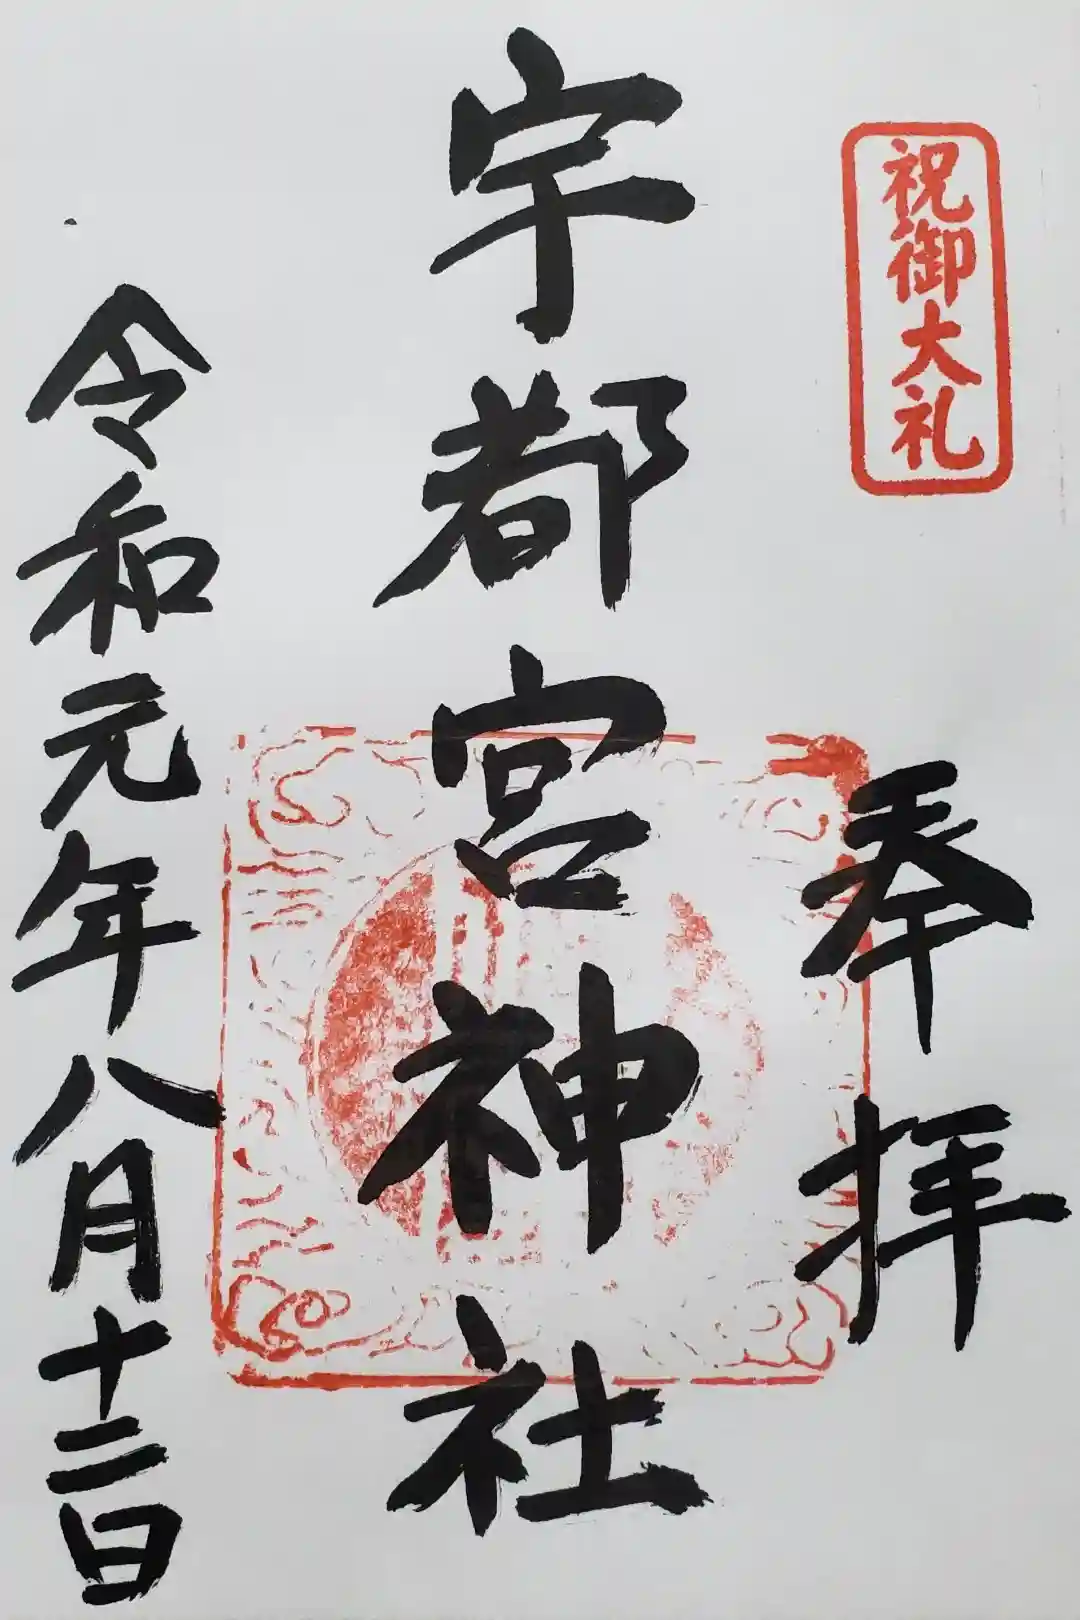 祝御大礼
奉拝
宇都宮神社
令和元年八月十二日